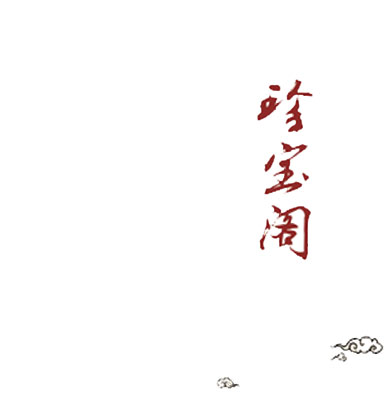 珍宝阁